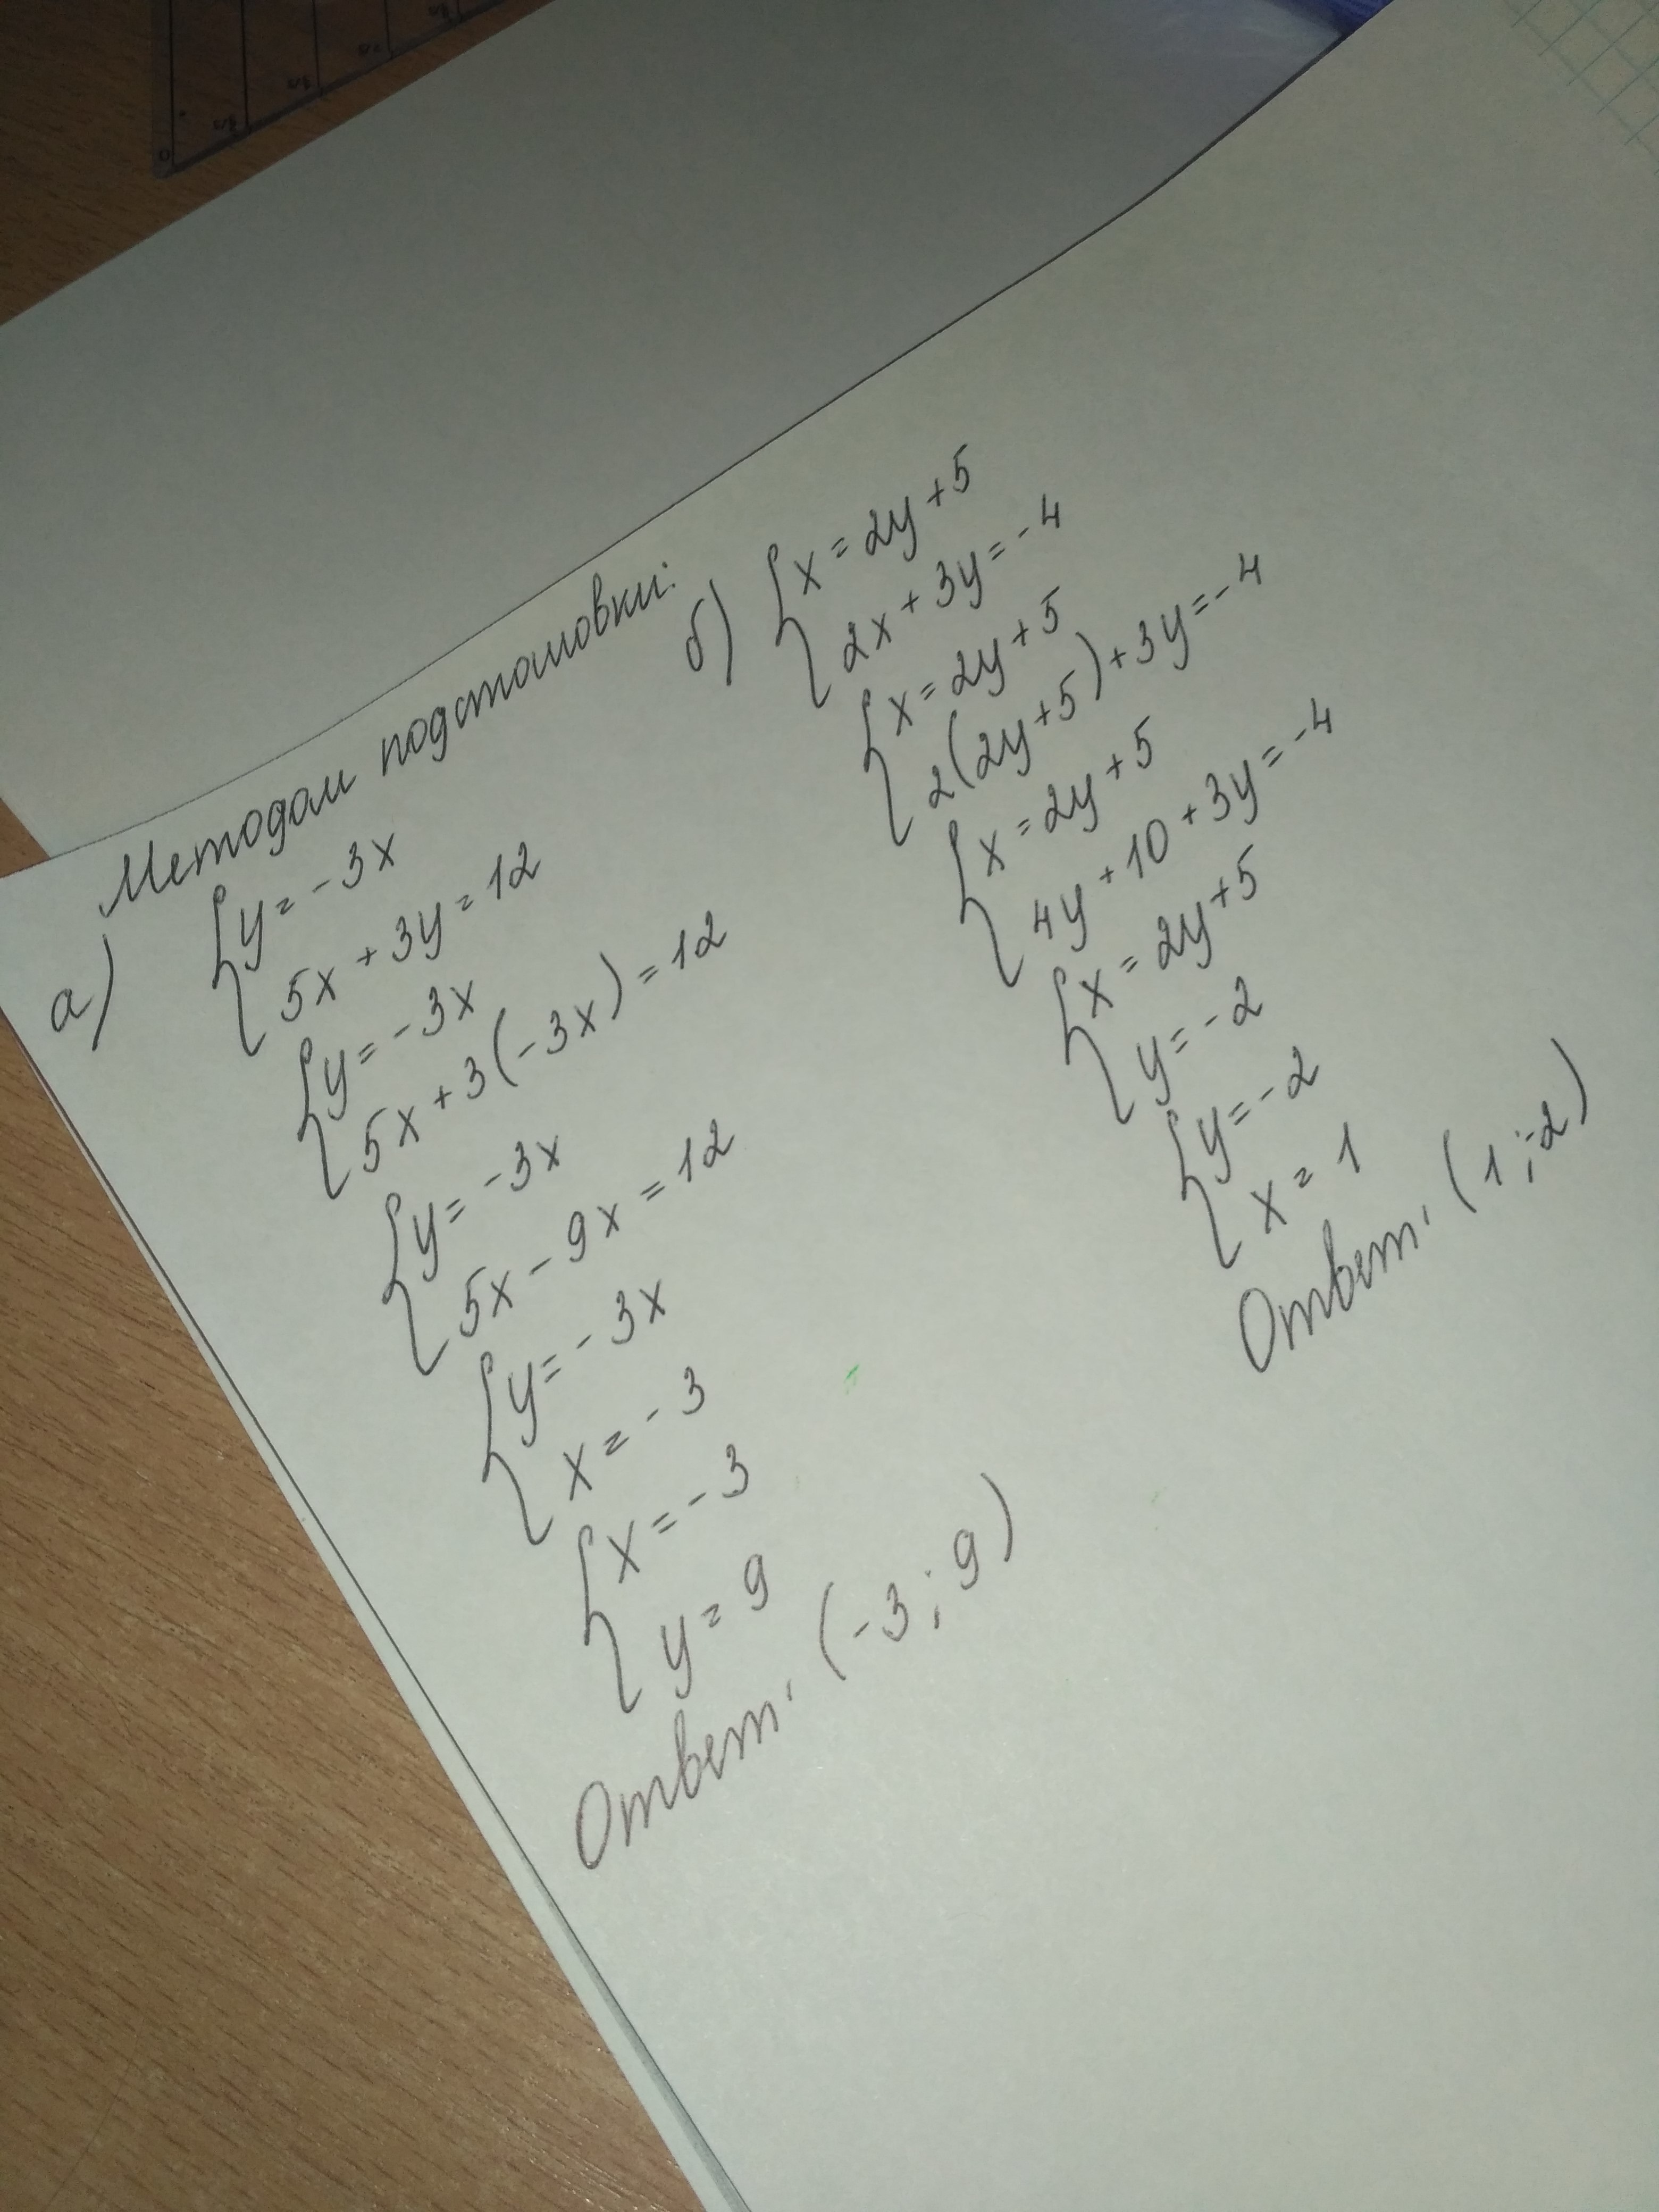 Методом подстановки:
а)
y = -3x
5x + 3y = 12
y = -3x
5x + 3(-3x) = 12
y = -3x
5x - 9x = 12
y = -3x
x = -3
x = -3
y = 9
Ответ: (-3; 9)
б)
x = 2y + 5
2x + 3y = -4
x = 2y + 5
2(2y + 5) + 3y = -4
x = 2y + 5
4y + 10 + 3y = -4
x = 2y + 5
y = -2
y = -2
x = 1
Ответ: (1; -2)